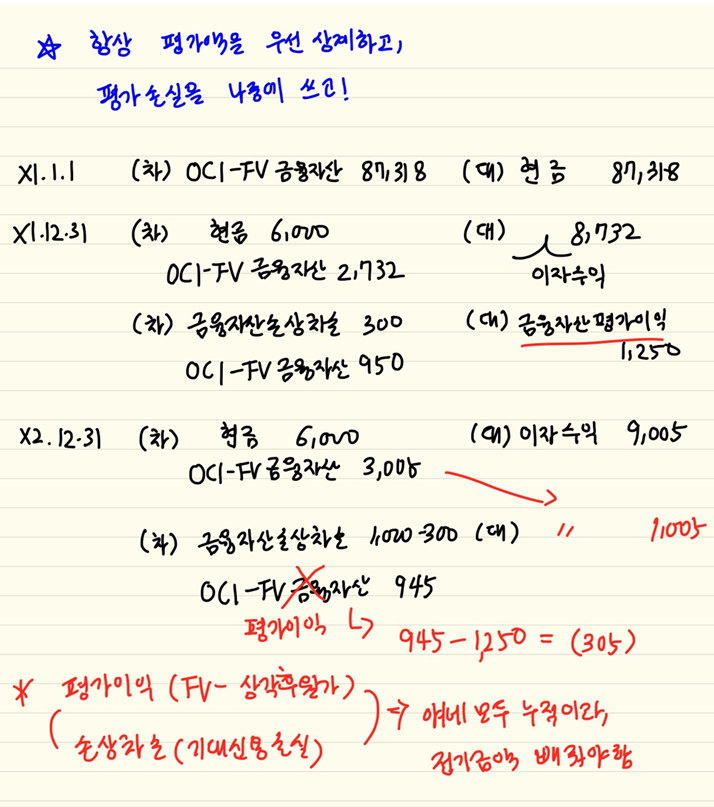 ☆ 항상 평가액을 우선 상계하고,
평가손실을 나중에 쓰고!
X1.1.1 (차) OCI-FV 금융자산 87,318 (대) 현금 87,318
X1.12.31 (차) 현금 6,000 (대) 8,732
OCI-FV 금융자산 2,732 이자수익
(차) 금융자산손상차손 300 (대) 금융자산평가이익
OCI-FV 금융자산 950 1,250
X2.12.31 (차) 현금 6,000 (대) 이자수익 9,005
OCI-FV 금융자산 3,005
(차) 금융자산손상차손 1,000-300 (대) 〃 1,005
OCI-FV 금융자산 945
평가이익 ↳ 945-1,250 = (305)
* 평가이익 (FV- 상각후원가)
손상차손 (기대신용손실)
⇒ 얘네 모두 누적이라,
전기금액 빼줘야함